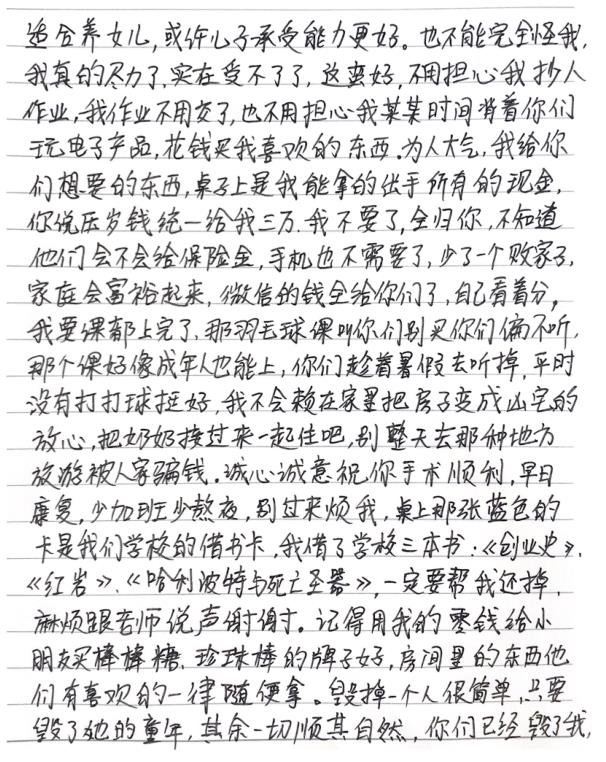 适合养女儿,或许心子承受能力更好。也不能完全怪我,
我真的尽力了,实在受不了了,这蛮好,不用担心我抄人
作业,我作业不用交了,也不用担心我某某时间背着你们
玩电子产品,花钱买我喜欢的东西.为人大气,我给你
们想要的东西,桌子上是我能拿的出手所有的现金,
你说压岁钱统一给我三万.我不要了,全归你,不知道
他们会不会给保险金,手机也不需要了,少了一个败家子,
家庭会富裕起来,微信的钱全给你们了,自己看着分,
我要课都上完了,那羽毛球课叫你们别买你们偏不听,
那个课好像成年人也能上,你们趁着暑假去听掉,平时
没有打打球挺好,我不会赖在家里把房子变成凶宅的
放心,把奶奶接过来一起住吧,别整天去那种地方
旅游被人家骗钱.诚心诚意祝你手术顺利,早日
康复,少加班少熬夜,别过来烦我,桌上那张蓝色的
卡是我们学校的借书卡,我借了学校三本书:《创业史》、
《红岩》、《哈利波特与死亡圣器》,一定要帮我还掉,
麻烦跟老师说声谢谢。记得用我的零钱给小
朋友买棒棒糖,珍珠棒的牌子好,房间里的东西他
们有喜欢的一律随便拿。毁掉一个人很简单,只要
毁了她的童年,其余一切顺其自然,你们已经毁了我,